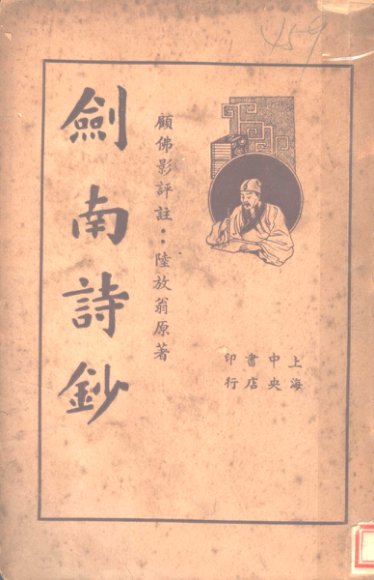 459
上海
中央
書店
印行
顧佛影評註：陸放翁原著
劍南詩鈔